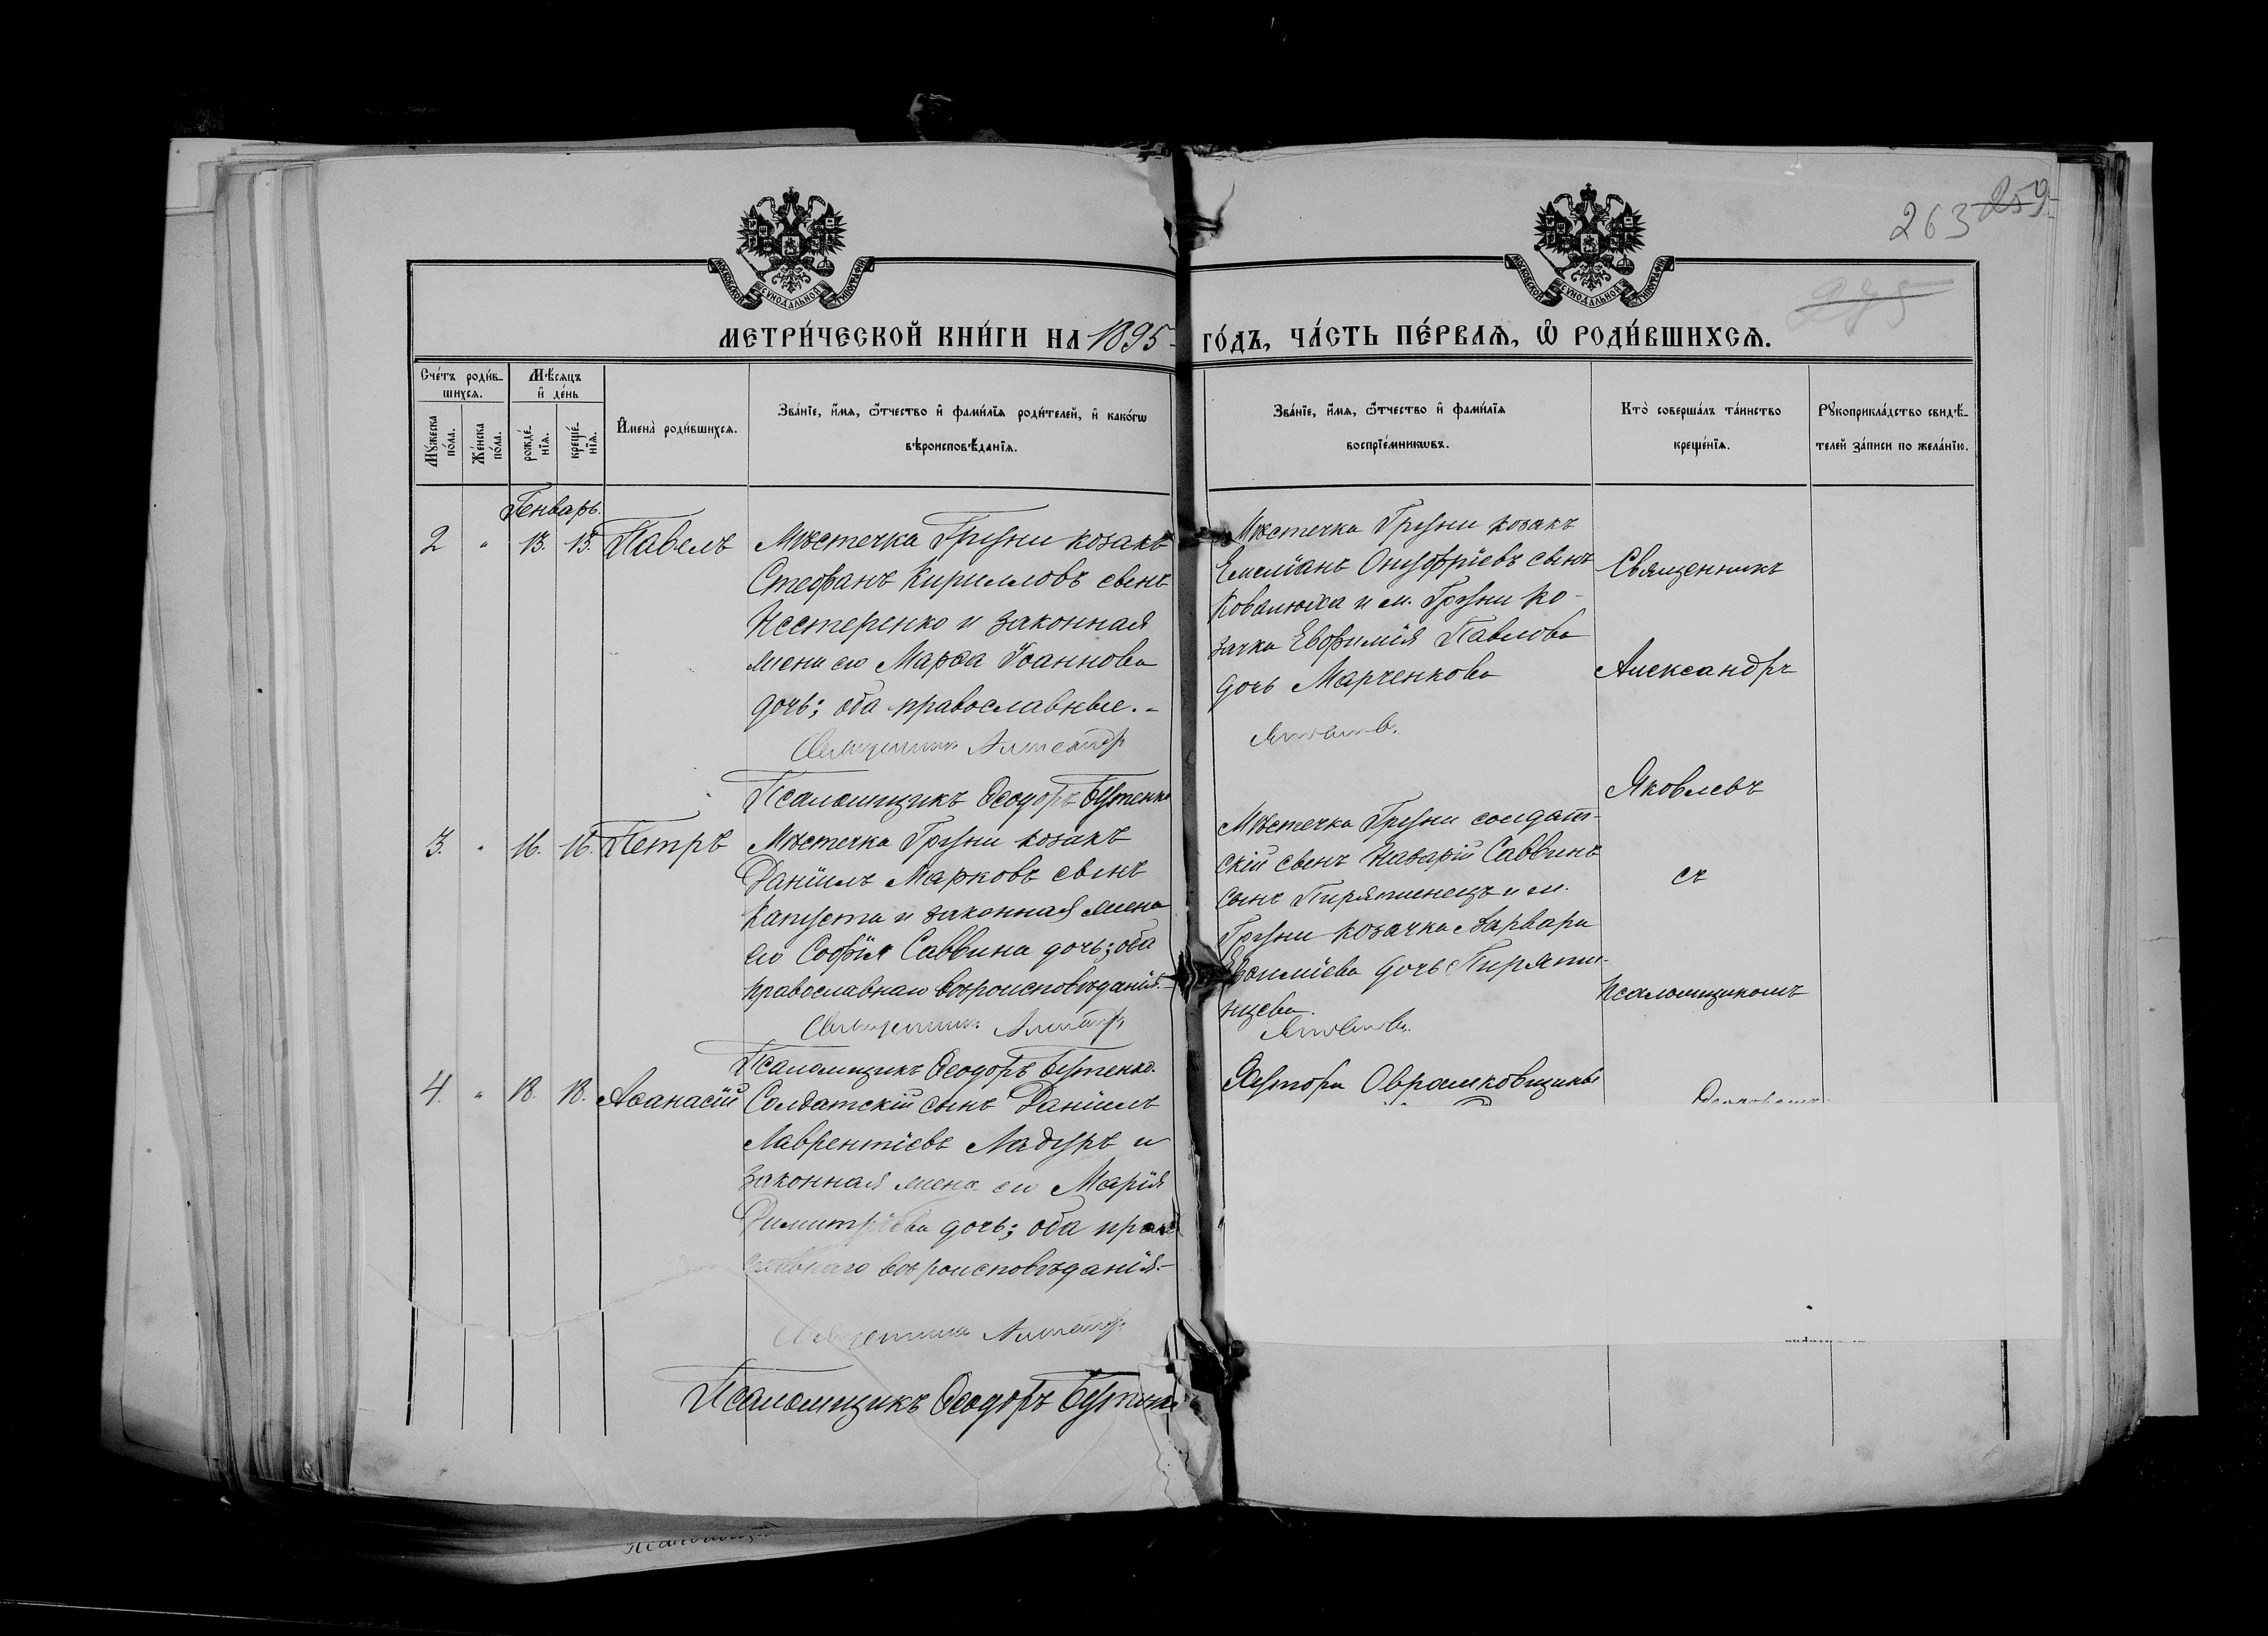 263 259
275
МОСКОВСКОЙ СУНОДАЛЬНОЙ ТИПОГРАФІИ
МОСКОВСКОЙ СУНОДАЛЬНОЙ ТИПОГРАФІИ
МЕТРИ́ЧЕСКОЙ КНИ́ГИ НА 1895 ГО́ДЪ, ЧА́СТЬ ПЕ́РВАѦ, Ѡ҆ РОДИ́ВШИХСѦ.
Сче́тъ роди́в-
шихсѧ.
Мꙋ́жеска по́ла.
Же́нска по́ла.
Мѣ́сѧцъ
и҆ де́нь
рожде́-нїѧ.
креще́-нїѧ.
И҆мена̀ роди́вшихсѧ.
Зва́нїе, и҆́мѧ, ѻ҆́тчество и҆ фами́лїѧ роди́телей, и҆ како́гѡ
вѣроисповѣ́данїѧ.
Зва́нїе, и҆́мѧ, ѻ҆́тчество и҆ фами́лїѧ
воспрїе́мникѡвъ.
Кто̀ соверша́лъ та́инство
креще́нїѧ.
Рꙋкоприкла́дство свидѣ́-
телей за́писи по жела́нїю.
Генварь.
2 " 13. 13. Павелъ
Мѣстечка Груни козакъ
Стефанъ Кирилловъ сынъ
Нестеренко и законная
жена его Марѳа Іоаннова
дочь; оба православные.-
Священникъ Александръ
Псаломщикъ Ѳеодоръ Бутенко
Мѣстечка Груни козакъ
Емеліанъ Онуфріевъ сынъ
Ковалюха и м. Груни ко-
зачка Евфимія Павлова
дочь Марченкова
Яковлевъ.
Священникъ
Александръ
Яковлевъ
съ
Псаломщикомъ
3. " 16. 16. Петръ
Мѣстечка Груни козакъ
Даніилъ Марковъ сынъ
Капуста и законная жена
его Софія Саввина дочь; оба
православнаго вѣроисповѣданія.-
Священникъ Александръ
Псаломщикъ Ѳеодоръ Бутенко.
Мѣстечка Груни солдат-
скій сынъ Назарій Саввинъ
сынъ Пирятинецъ и м.
Груни козачка Варвара
дочь Пиряти-
нцева.
Яковлевъ.
4. " 18. 18. Аѳанасій
Солдатскій сынъ Даніилъ
Лаврентіевъ Ладуръ и
законная жена его Марія
Димитріева дочь; оба право
славнаго вѣроисповѣданія.-
Священникъ Александръ
Псаломщикъ Ѳеодоръ Бутенко
Хутора Оврамковщины